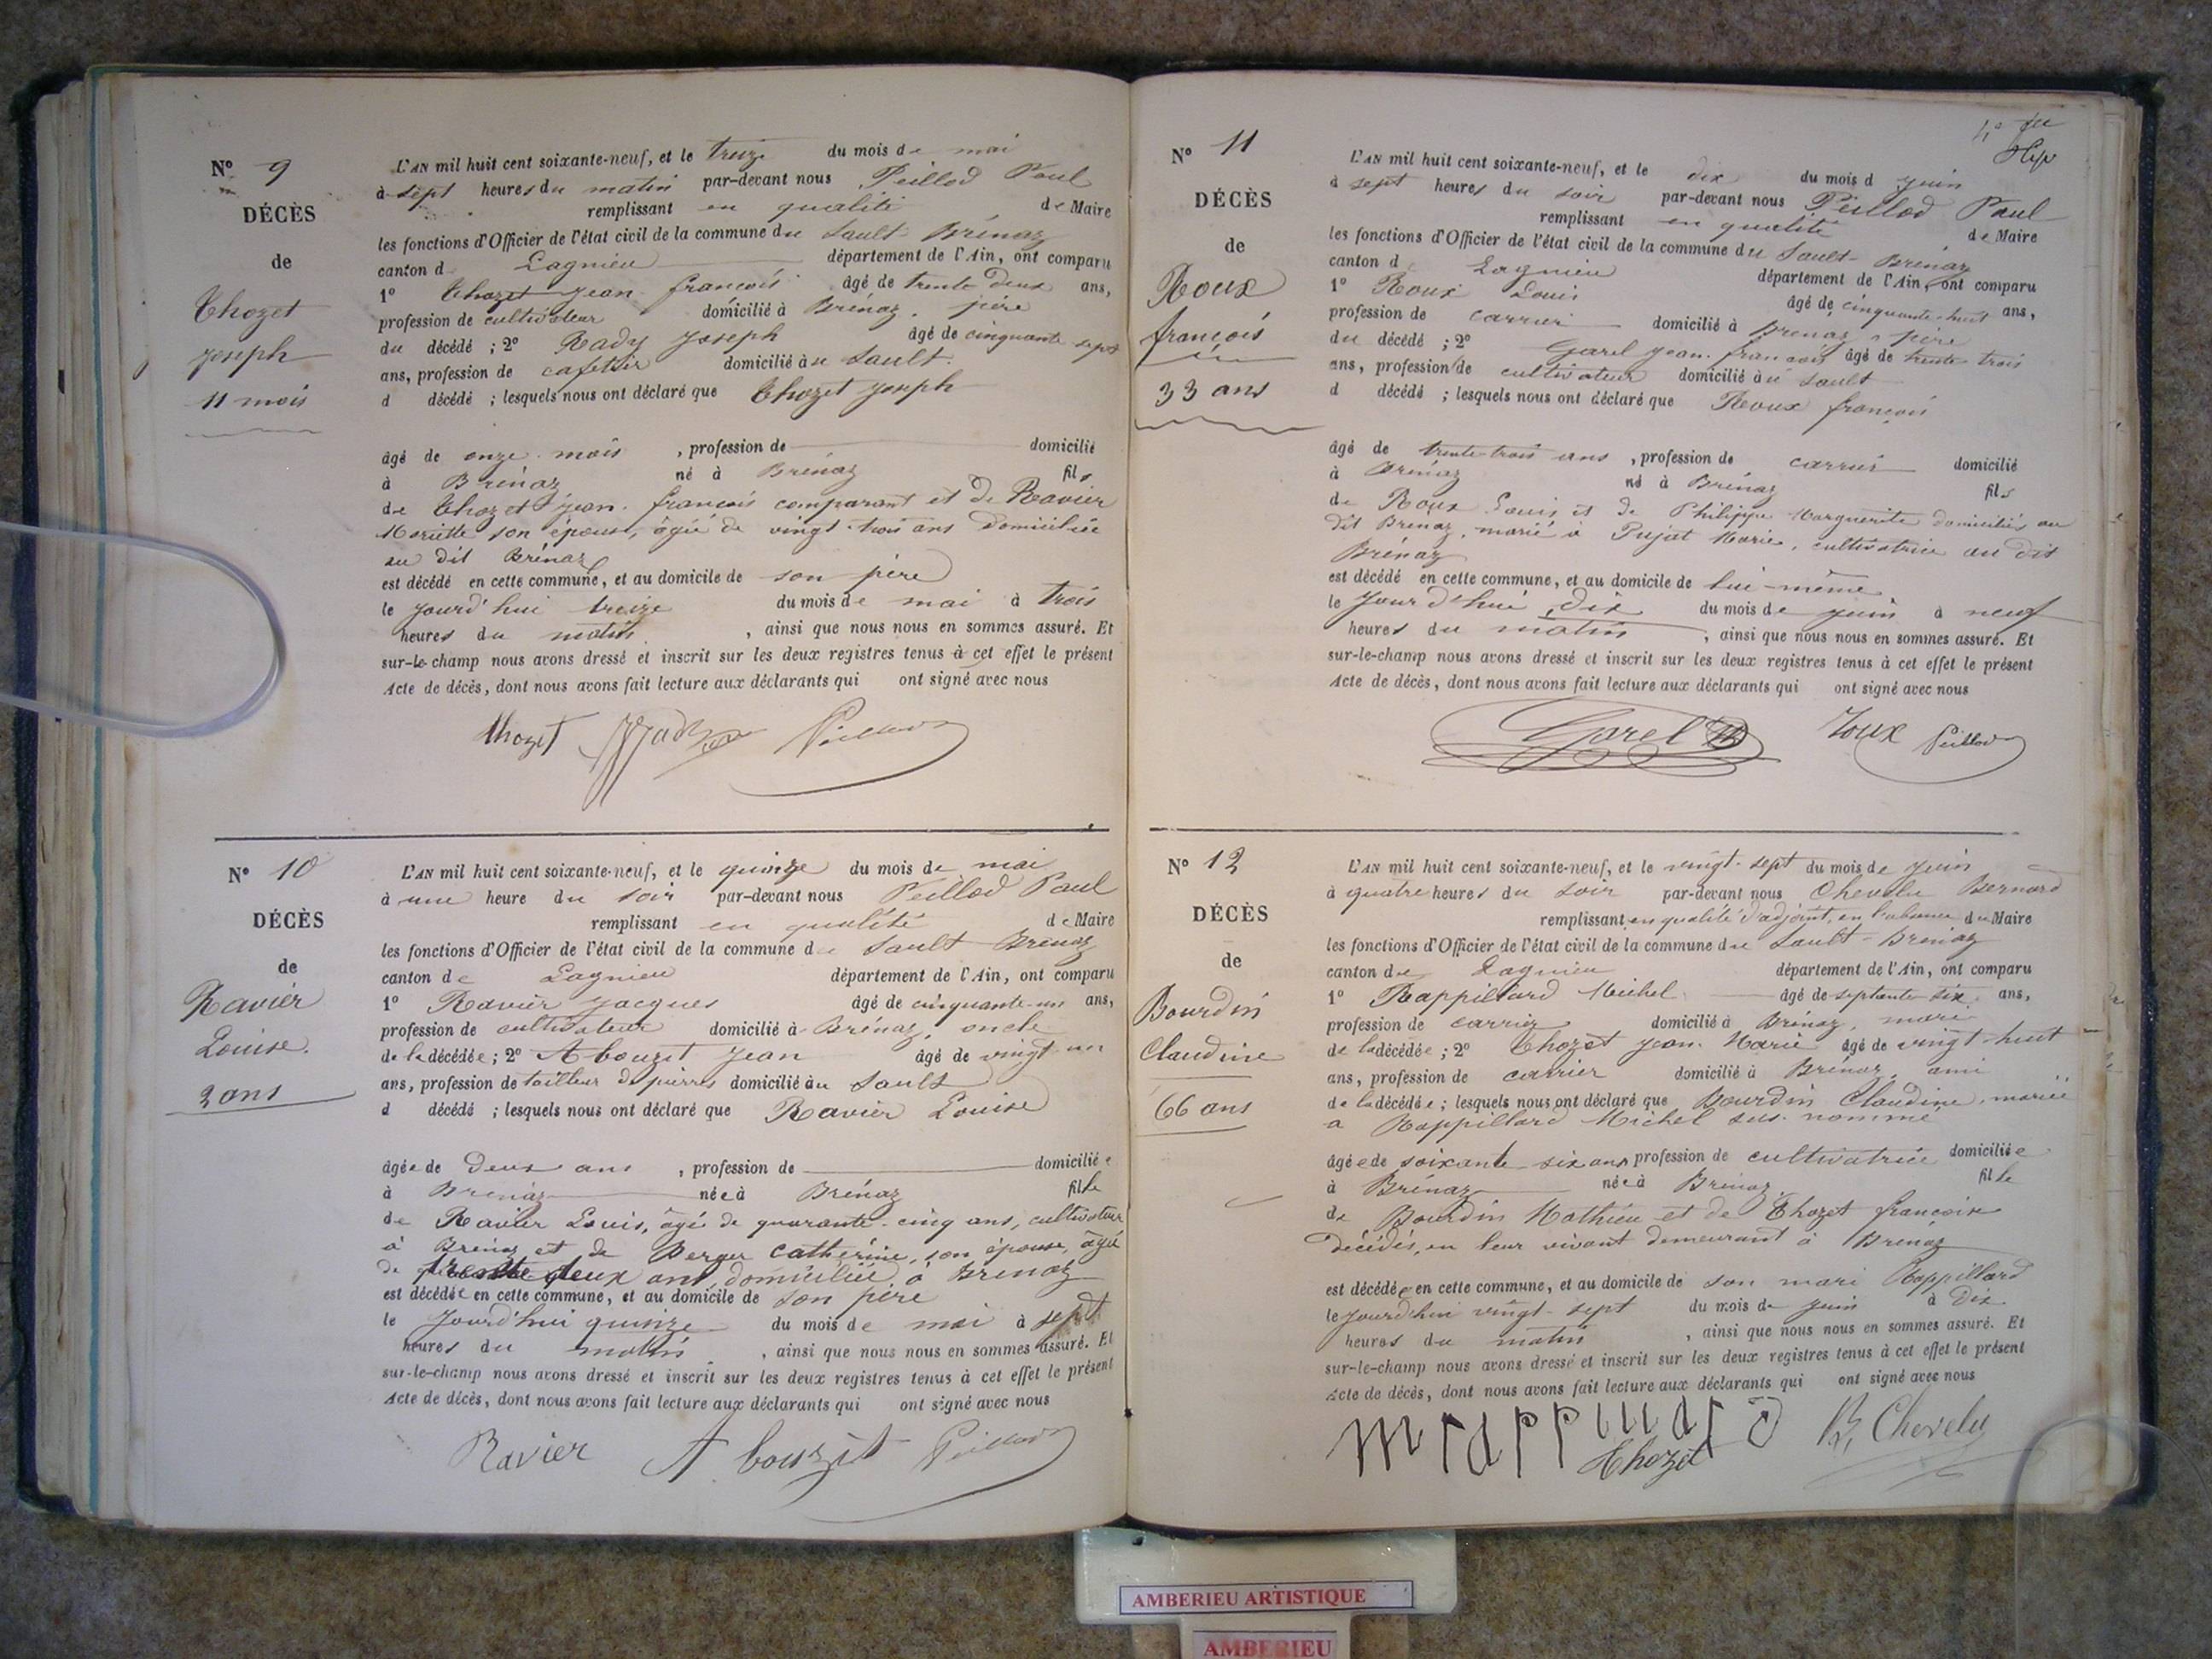 N° 9
DÉCÈS
de
Thozet
Joseph
11 mois
L'AN mil huit cent soixante-neuf, et le treize du mois de mai
à sept heures du matin par-devant nous Peillod Paul
remplissant en qualité de Maire
les fonctions d'Officier de l'état civil de la commune du Sault-Brénaz
canton d Lagnieu département de l'Ain, ont comparu
1° Thozet Jean François âgé de trente deux ans,
profession de cultivateur domicilié à Brénaz, père
du décédé ; 2° Rady Joseph âgé de cinquante sept
ans, profession de cafetier domicilié au Sault
d décédé ; lesquels nous ont déclaré que Thozet Joseph
âgé de onze mois , profession de domicilié
à Brénaz né à Brénaz fils
de Thozet Jean François comparant et de Ravier
Mariette son épouse, âgée de vingt-trois ans domiciliée
au dit Brénaz
est décédé en cette commune, et au domicile de son père
le jourd'hui treize du mois de mai à trois
heures du matin , ainsi que nous nous en sommes assuré. Et
sur-le-champ nous avons dressé et inscrit sur les deux registres tenus à cet effet le présent
Acte de décès, dont nous avons fait lecture aux déclarants qui ont signé avec nous
thozet Rady Peillod
N° 10
DÉCÈS
de
Ravier
Louise.
2 ans
L'AN mil huit cent soixante-neuf, et le quinze du mois de mai
à une heure du soir par-devant nous Peillod Paul
remplissant en qualité de Maire
les fonctions d'Officier de l'état civil de la commune du Sault Brénaz
canton de Lagnieu département de l'Ain, ont comparu
1° Ravier Jacques âgé de cinquante-un ans,
profession de cultivateur domicilié à Brénaz, oncle
de la décédée ; 2° Abouzit Jean âgé de vingt un
ans, profession de tailleur de pierres domicilié au Sault
d décédé ; lesquels nous ont déclaré que Ravier Louise
âgée de deux ans , profession de domiciliée
à Brénaz née à Brénaz fille
de Ravier Louis, âgé de quarante-cinq ans, cultivateur
à Brénaz et de Berger Catherine, son épouse, âgée
de trente deux ans, domiciliée à Brénaz
est décédée en cette commune, et au domicile de son père
le jourd'hui quinze du mois de mai à sept
heures du matin , ainsi que nous nous en sommes assuré. Et
sur-le-champ nous avons dressé et inscrit sur les deux registres tenus à cet effet le présent
Acte de décès, dont nous avons fait lecture aux déclarants qui ont signé avec nous
Ravier Abouzit Peillod
N° 11
DÉCÈS
de
Roux
françois
33 ans
L'AN mil huit cent soixante-neuf, et le dix du mois d juin
à sept heures du soir par-devant nous Peillod Paul
remplissant en qualité de Maire
les fonctions d'Officier de l'état civil de la commune du Sault-Brénaz
canton d Lagnieu département de l'Ain, ont comparu
1° Roux Louis âgé de cinquante-huit ans,
profession de carrier domicilié à Brénaz, père
du décédé ; 2° Garel Jean françois âgé de trente-trois
ans, profession de cultivateur domicilié au Sault
d décédé ; lesquels nous ont déclaré que Roux françois
âgé de trente-trois ans , profession de carrier domicilié
à Brénaz né à Brénaz fils
de Roux Louis et de Philippe Marguerite domiciliés au
dit Brénaz, marié à Pujat Marie, cultivatrice au dit
Brénaz
est décédé en cette commune, et au domicile de lui-même
le jourd'hui dix du mois de juin à neuf
heures du matin , ainsi que nous nous en sommes assuré. Et
sur-le-champ nous avons dressé et inscrit sur les deux registres tenus à cet effet le présent
Acte de décès, dont nous avons fait lecture aux déclarants qui ont signé avec nous
Garel Roux Peillod
N° 12
DÉCÈS
de
Bourdin
Claudine
66 ans
L'AN mil huit cent soixante-neuf, et le vingt-sept du mois de juin
à quatre heures du soir par-devant nous Chevelu Bernard
remplissant en qualité d'adjoint, en l'absence du Maire
les fonctions d'Officier de l'état civil de la commune du Sault-Brénaz
canton de Lagnieu département de l'Ain, ont comparu
1° Rappillard Michel âgé de septante six ans,
profession de carrier domicilié à Brénaz, mari
de la décédée ; 2° Thozet Jean Marie âgé de vingt-huit
ans, profession de carrier domicilié à Brénaz, ami
de la décédée ; lesquels nous ont déclaré que Bourdin Claudine, mariée
a Rappillard Michel sus-nommé
âgée de soixante-six ans profession de cultivatrice domiciliée
à Brénaz née à Brénaz fille
de Bourdin Mathieu et de Thozet françoise
décédés, en leur vivant demeurant à Brénaz
est décédée en cette commune, et au domicile de son mari Rappillard
le jourd'hui vingt-sept du mois de juin à dix
heures du matin , ainsi que nous nous en sommes assuré. Et
sur-le-champ nous avons dressé et inscrit sur les deux registres tenus à cet effet le présent
Acte de décès, dont nous avons fait lecture aux déclarants qui ont signé avec nous
Thozet B, Chevelu
AMBERIEU ARTISTIQUE
AMBERIEU